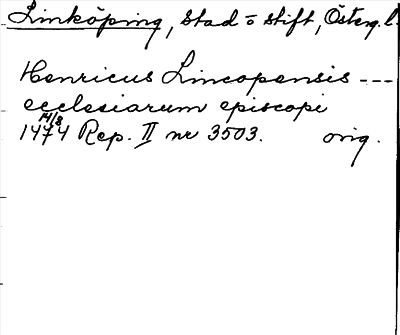 Linköping, Stad o stift, Österg. l.
Henricus Lincopensis ---
ecclesiarum episcopi
14/8
1474 Rep. II nr 3503. orig.